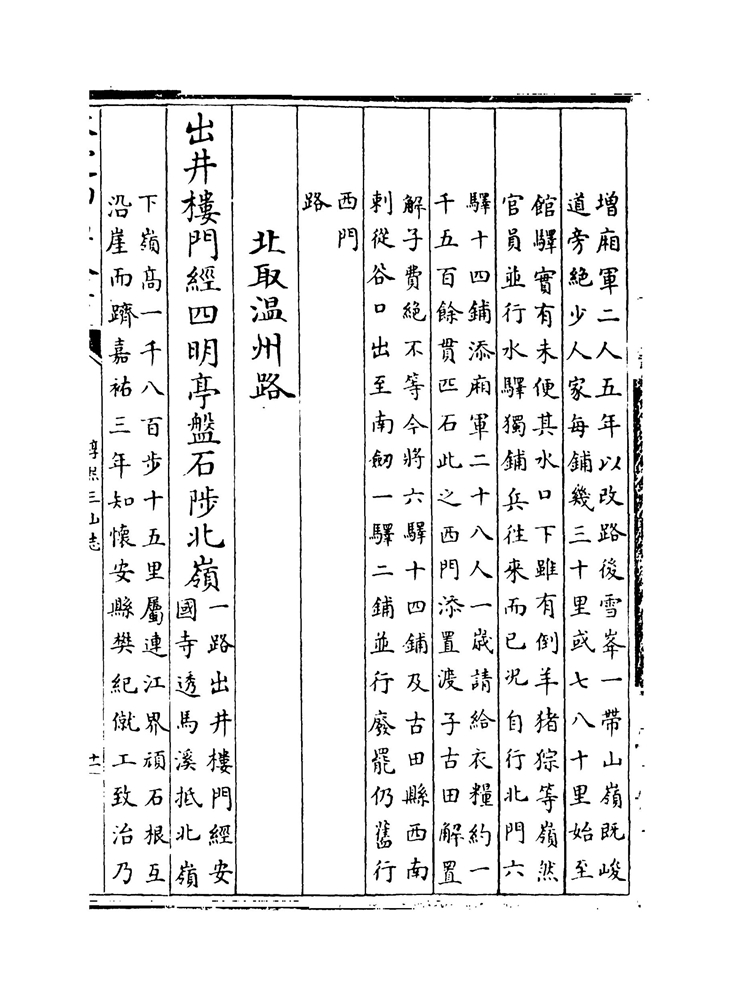 增廂軍二人五年以改路後雪峯一帶山嶺既峻
道旁絶少人家每鋪幾三十里或七八十里始至
館驛實有未便其水口下雖有倒羊猪猔等嶺然
官員並行水驛獨鋪兵往來而已况自行北門六
驛十四鋪添廂軍二十八人一歲請給衣糧約一
千五百餘貫匹石此之西門添置渡子古田解置
解子費絶不等今將六驛十四鋪及古田縣西南
剌從谷口出至南劒一驛二鋪並行廢罷仍舊行
西門
路
北取温州路
出井樓門經四明亭盤石陟北嶺
一路出井樓門經安
國寺透馬溪抵北嶺
下嶺高一千八百步十五里屬連江界頑石根互
沿崖而躋嘉祐三年知懷安縣樊紀僦工致治乃
淳熙三山志